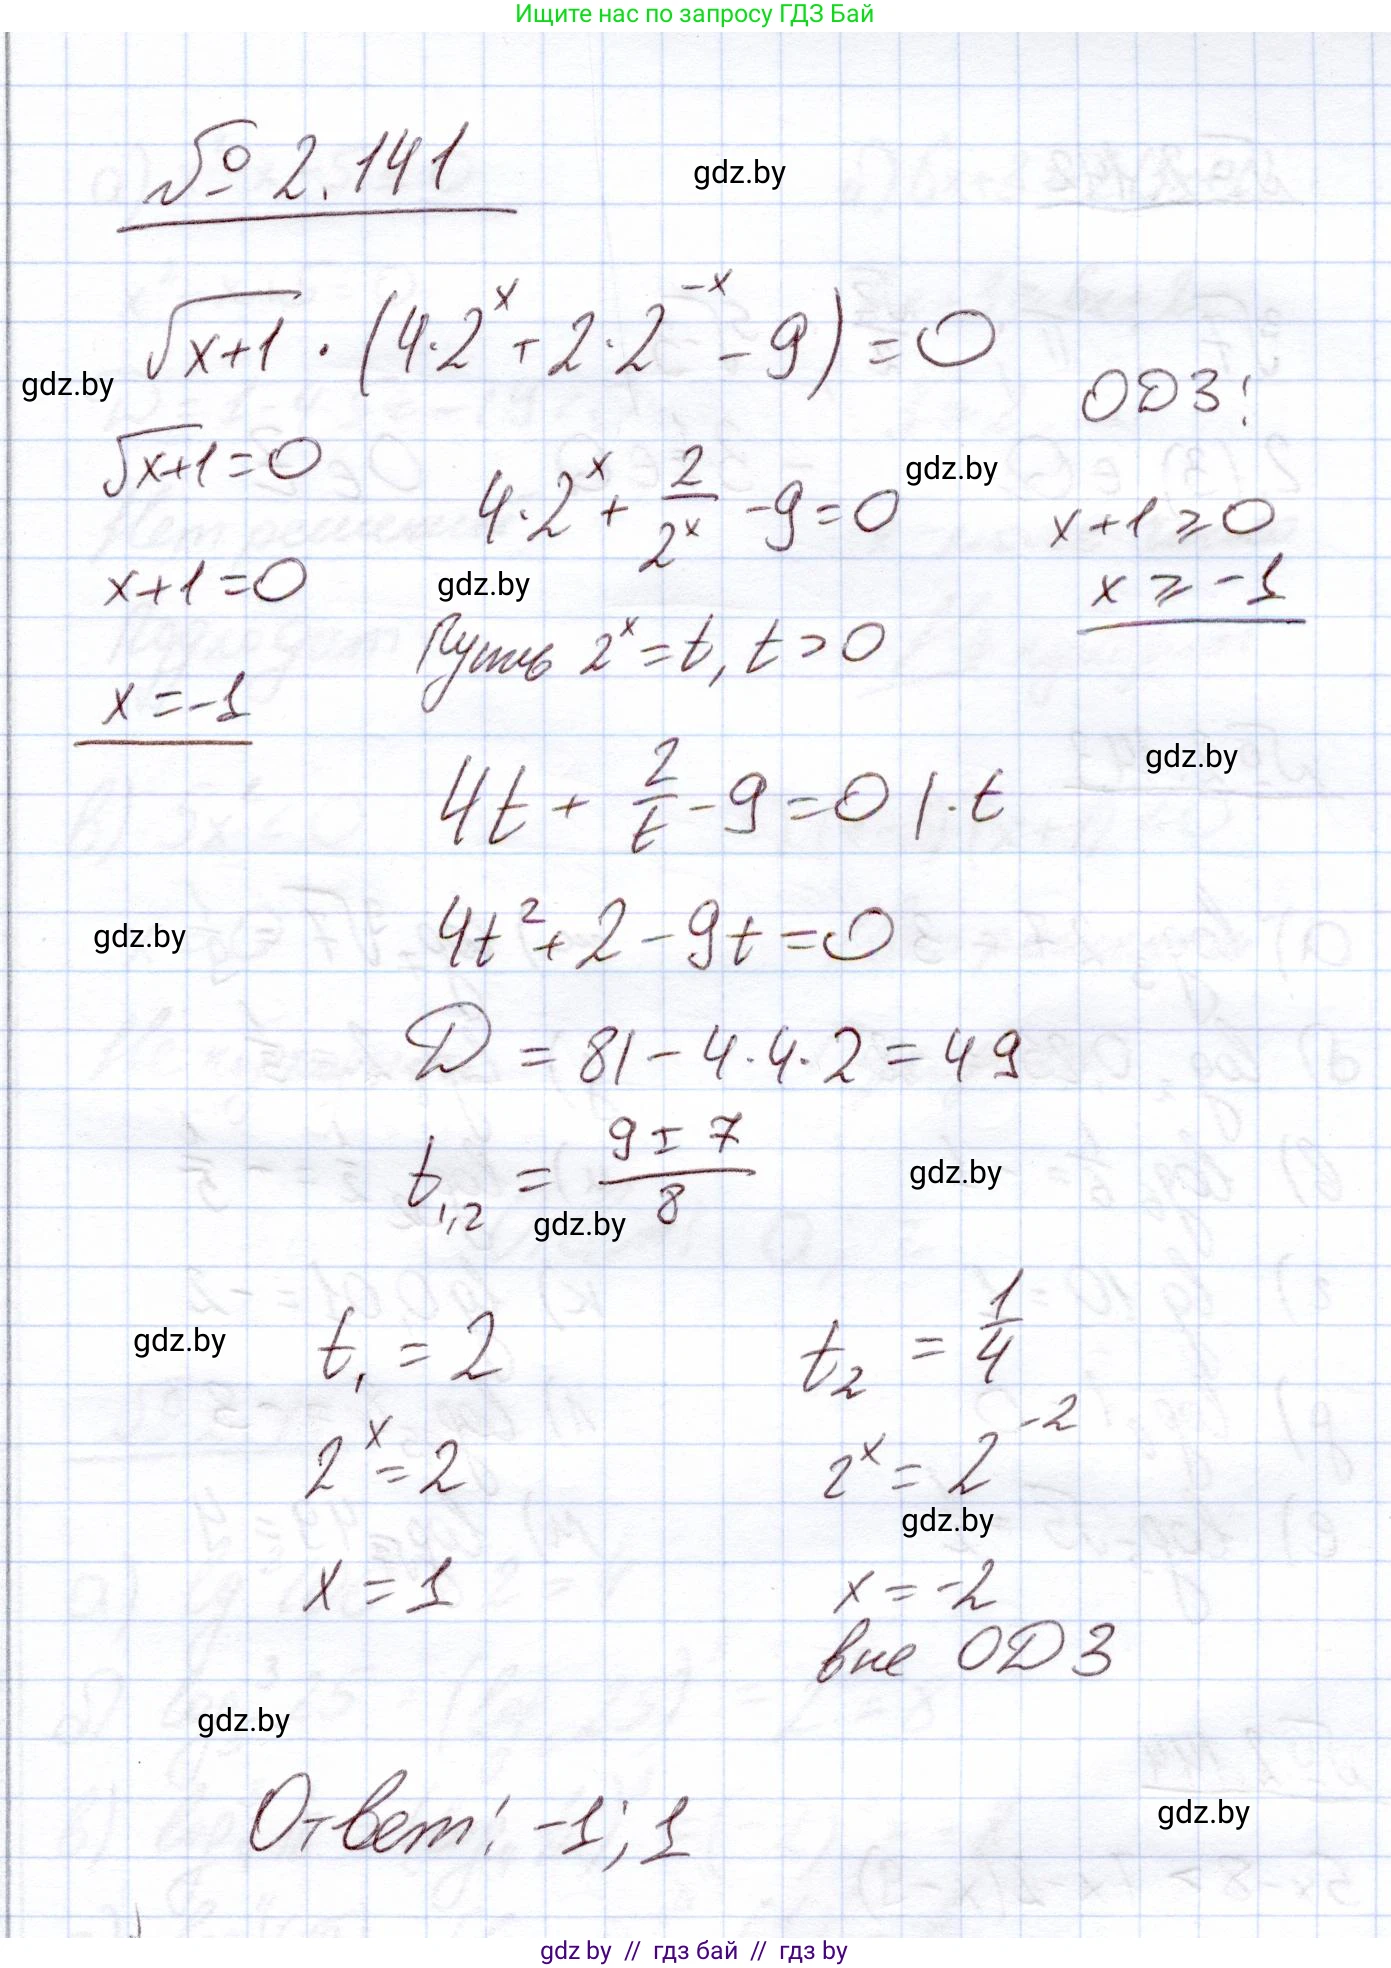 Ищите нас по запросу ГДЗ Бай
№ 2.141
gdz.by
√(x+1) · (4·2^x + 2·2^(-x) - 9) = 0
gdz.by
ОДЗ:
√(x+1) = 0
4·2^x + 2/2^x - 9 = 0
gdz.by
x+1 ≥ 0
x+1 = 0
gdz.by
x ≥ -1
Пусть 2^x = t, t > 0
x = -1
4t + 2/t - 9 = 0 | · t
gdz.by
gdz.by
4t² + 2 - 9t = 0
D = 81 - 4·4·2 = 49
t₁,₂ = (9 ± 7)/8
gdz.by
gdz.by
gdz.by
t₁ = 2
t₂ = 1/4
2^x = 2
2^x = 2^(-2)
gdz.by
x = 1
x = -2
вне ОДЗ
gdz.by
Ответ: -1; 1
gdz.by
gdz by // гдз бай // гдз by